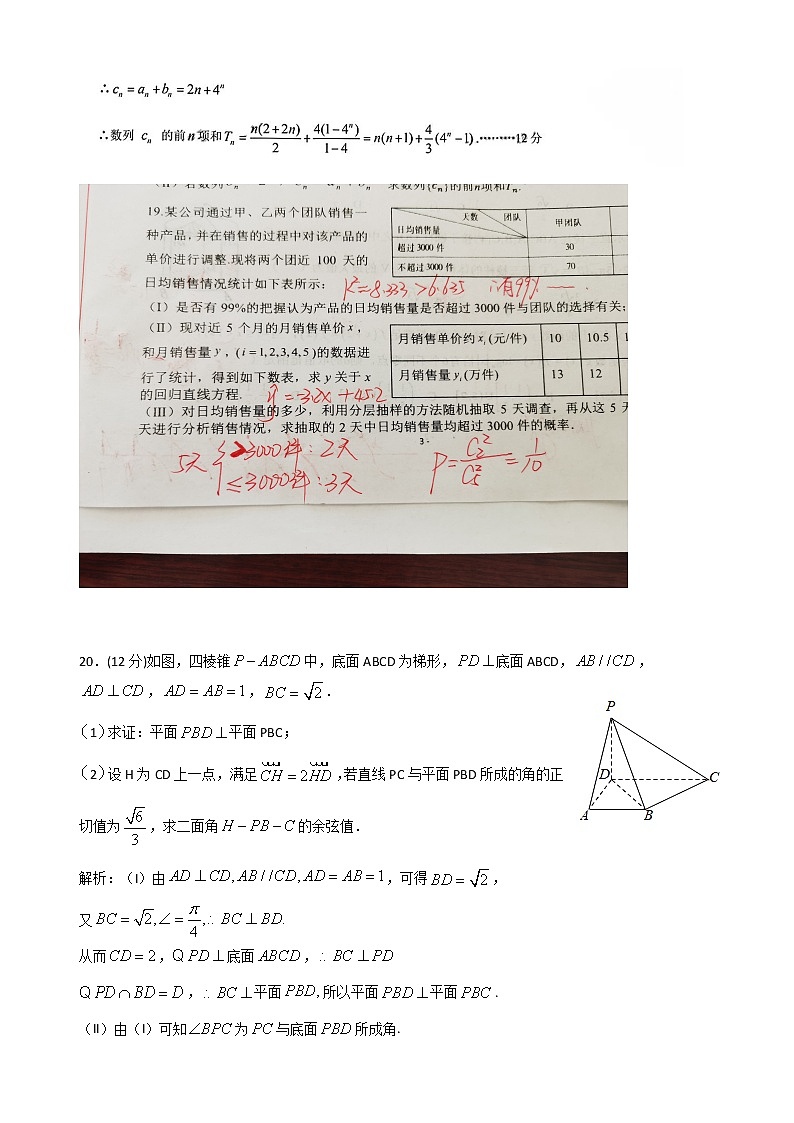 ∴ cₙ = aₙ + bₙ = 2n + 4ⁿ
∴数列 cₙ 的前n项和Tₙ = n(2+2n)/2 + 4(1-4ⁿ)/(1-4) = n(n+1) + 4/3(4ⁿ-1).⋯⋯⋯12分
求数列{cₙ}的前n项和Tₙ.
19.某公司通过甲、乙两个团队销售一
种产品,并在销售的过程中对该产品的
单价进行调整.现将两个团近 100 天的
日均销售情况统计如下表所示:
天数 团队 日均销售量 甲团队
超过3000件 30
不超过3000件 70
K²=8.333>6.635 ∴有99%
(I)是否有99%的把握认为产品的日均销售量是否超过3000件与团队的选择有关;
(II)现对近 5 个月的月销售单价 x,
和月销售量 y,(i=1,2,3,4,5)的数据进
行了统计,得到如下数表,求 y 关于 x
的回归直线方程.
月销售单价约 xᵢ(元/件) 10 10.5
月销售量 yᵢ(万件) 13 12
ŷ=-3.2x+45.2
(III)对日均销售量的多少,利用分层抽样的方法随机抽取 5 天调查,再从这 5 天
天进行分析销售情况,求抽取的 2 天中日均销售量均超过 3000 件的概率.
3
5天 { >3000件:2天
≤3000件:3天
P=C₂²/C₅²=1/10
20.(12分)如图,四棱锥P-ABCD中,底面ABCD为梯形,PD⊥底面ABCD,AB//CD,
AD⊥CD,AD=AB=1,BC=√2.
(1)求证:平面PBD⊥平面PBC;
(2)设H为CD上一点,满足CH=2HD,若直线PC与平面PBD所成的角的正
切值为√6/3,求二面角H-PB-C的余弦值.
P
D
C
A
B
解析:(I)由AD⊥CD,AB//CD,AD=AB=1,可得BD=√2,
又BC=√2,∠=π/4,∴BC⊥BD.
从而CD=2,Q PD⊥底面ABCD,∴BC⊥PD
Q PD∩BD=D,∴BC⊥平面PBD,所以平面PBD⊥平面PBC.
(II)由(I)可知∠BPC为PC与底面PBD所成角.